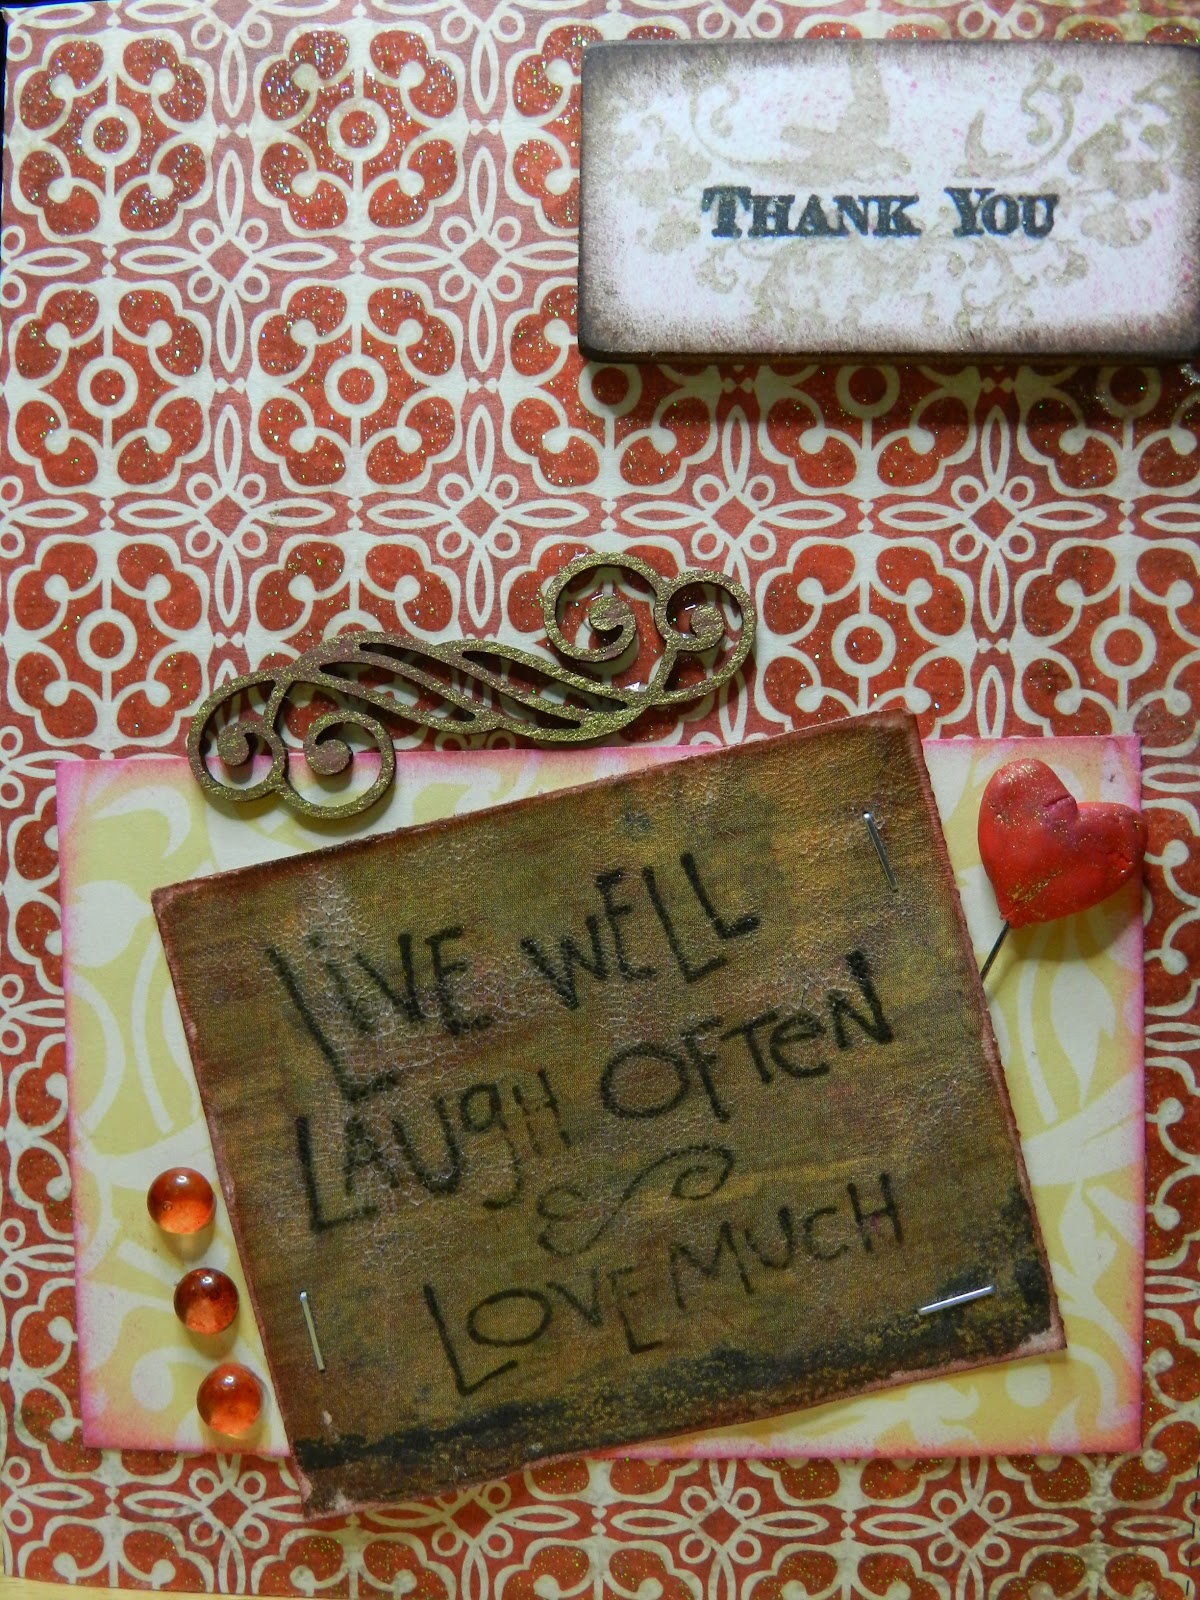 THANK YOU
LiVE WELL
LAUgH OFTeN
&
LOVE MUCH